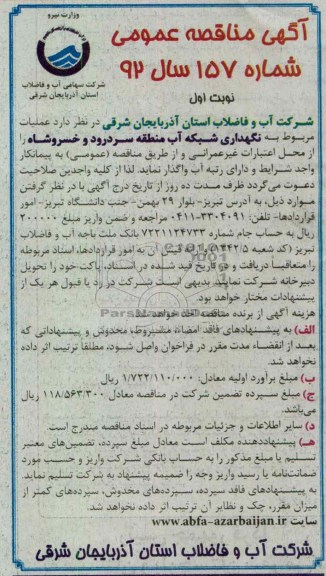 وزارت نیرو
آگهی مناقصه عمومی
شماره ۱۵۷ سال ۹۲
شرکت سهامی آب و فاضلاب
استان آذربایجان شرقی
نوبت اول
شرکت آب و فاضلاب استان آذربایجان شرقی در نظر دارد عملیات
مربوط به نگهداری شبکه آب منطقه سردرود و خسروشاه را
از محل اعتبارات غیرعمرانی و از طریق مناقصه (عمومی) به پیمانکار
واجد شرایط و دارای رتبه آب واگذار نماید. لذا از کلیه واجدین صلاحیت
دعوت می‌گردد ظرف مدت ده روز از تاریخ درج آگهی با در نظر گرفتن
موارد ذیل، به آدرس تبریز- بلوار ۲۹ بهمن- جنب دانشگاه تبریز- امور
قراردادها- تلفن: ۳۳۰۴۰۹۱-۰۴۱۱ مراجعه و ضمن واریز مبلغ ۲۰۰۰۰۰
ریال به حساب جام شماره ۷۲۲۱۱۲۴۷۳۳ بانک ملت باجه آب و فاضلاب
تبریز (کد شعبه ۳۴۴۲/۵) و ارائه فیش آن به امور قراردادها، اسناد مربوطه
را متعاقباً دریافت و تا تاریخ قید شده در اسناد، پاکت خود را تحویل
دبیرخانه شرکت نمایند. بدیهی است شرکت در رد یا قبول هر یک از
پیشنهادات مختار خواهد بود.
هزینه آگهی از برنده مناقصه اخذ خواهد شد.
الف) به پیشنهادهای فاقد امضاء، مشروط، مخدوش و پیشنهاداتی که
بعد از انقضاء مدت مقرر در فراخوان واصل شود، مطلقاً ترتیب اثر داده
نخواهد شد.
ب) مبلغ برآورد اولیه معادل: ۱/۷۲۲/۱۱۰/۰۰۰ ریال
ج) مبلغ سپرده تضمین شرکت در مناقصه معادل ۱۱۸/۵۶۳/۳۰۰ ریال
می‌باشد.
د) سایر اطلاعات و جزئیات مربوطه در اسناد مناقصه مندرج است.
هـ) پیشنهاددهنده مکلف است معادل مبلغ سپرده، تضمین‌های معتبر
تسلیم یا مبلغ مذکور را به حساب بانکی شرکت واریز و حسب مورد
ضمانت‌نامه یا رسید واریز وجه را ضمیمه پیشنهاد به شرکت تسلیم نماید.
به پیشنهادهای فاقد سپرده، سپرده‌های مخدوش، سپرده‌های کمتر از
میزان مقرر، چک و نظایر آن ترتیب اثر داده نخواهد شد.
سایت www.abfa-azarbaijan.ir
شرکت آب و فاضلاب استان آذربایجان شرقی